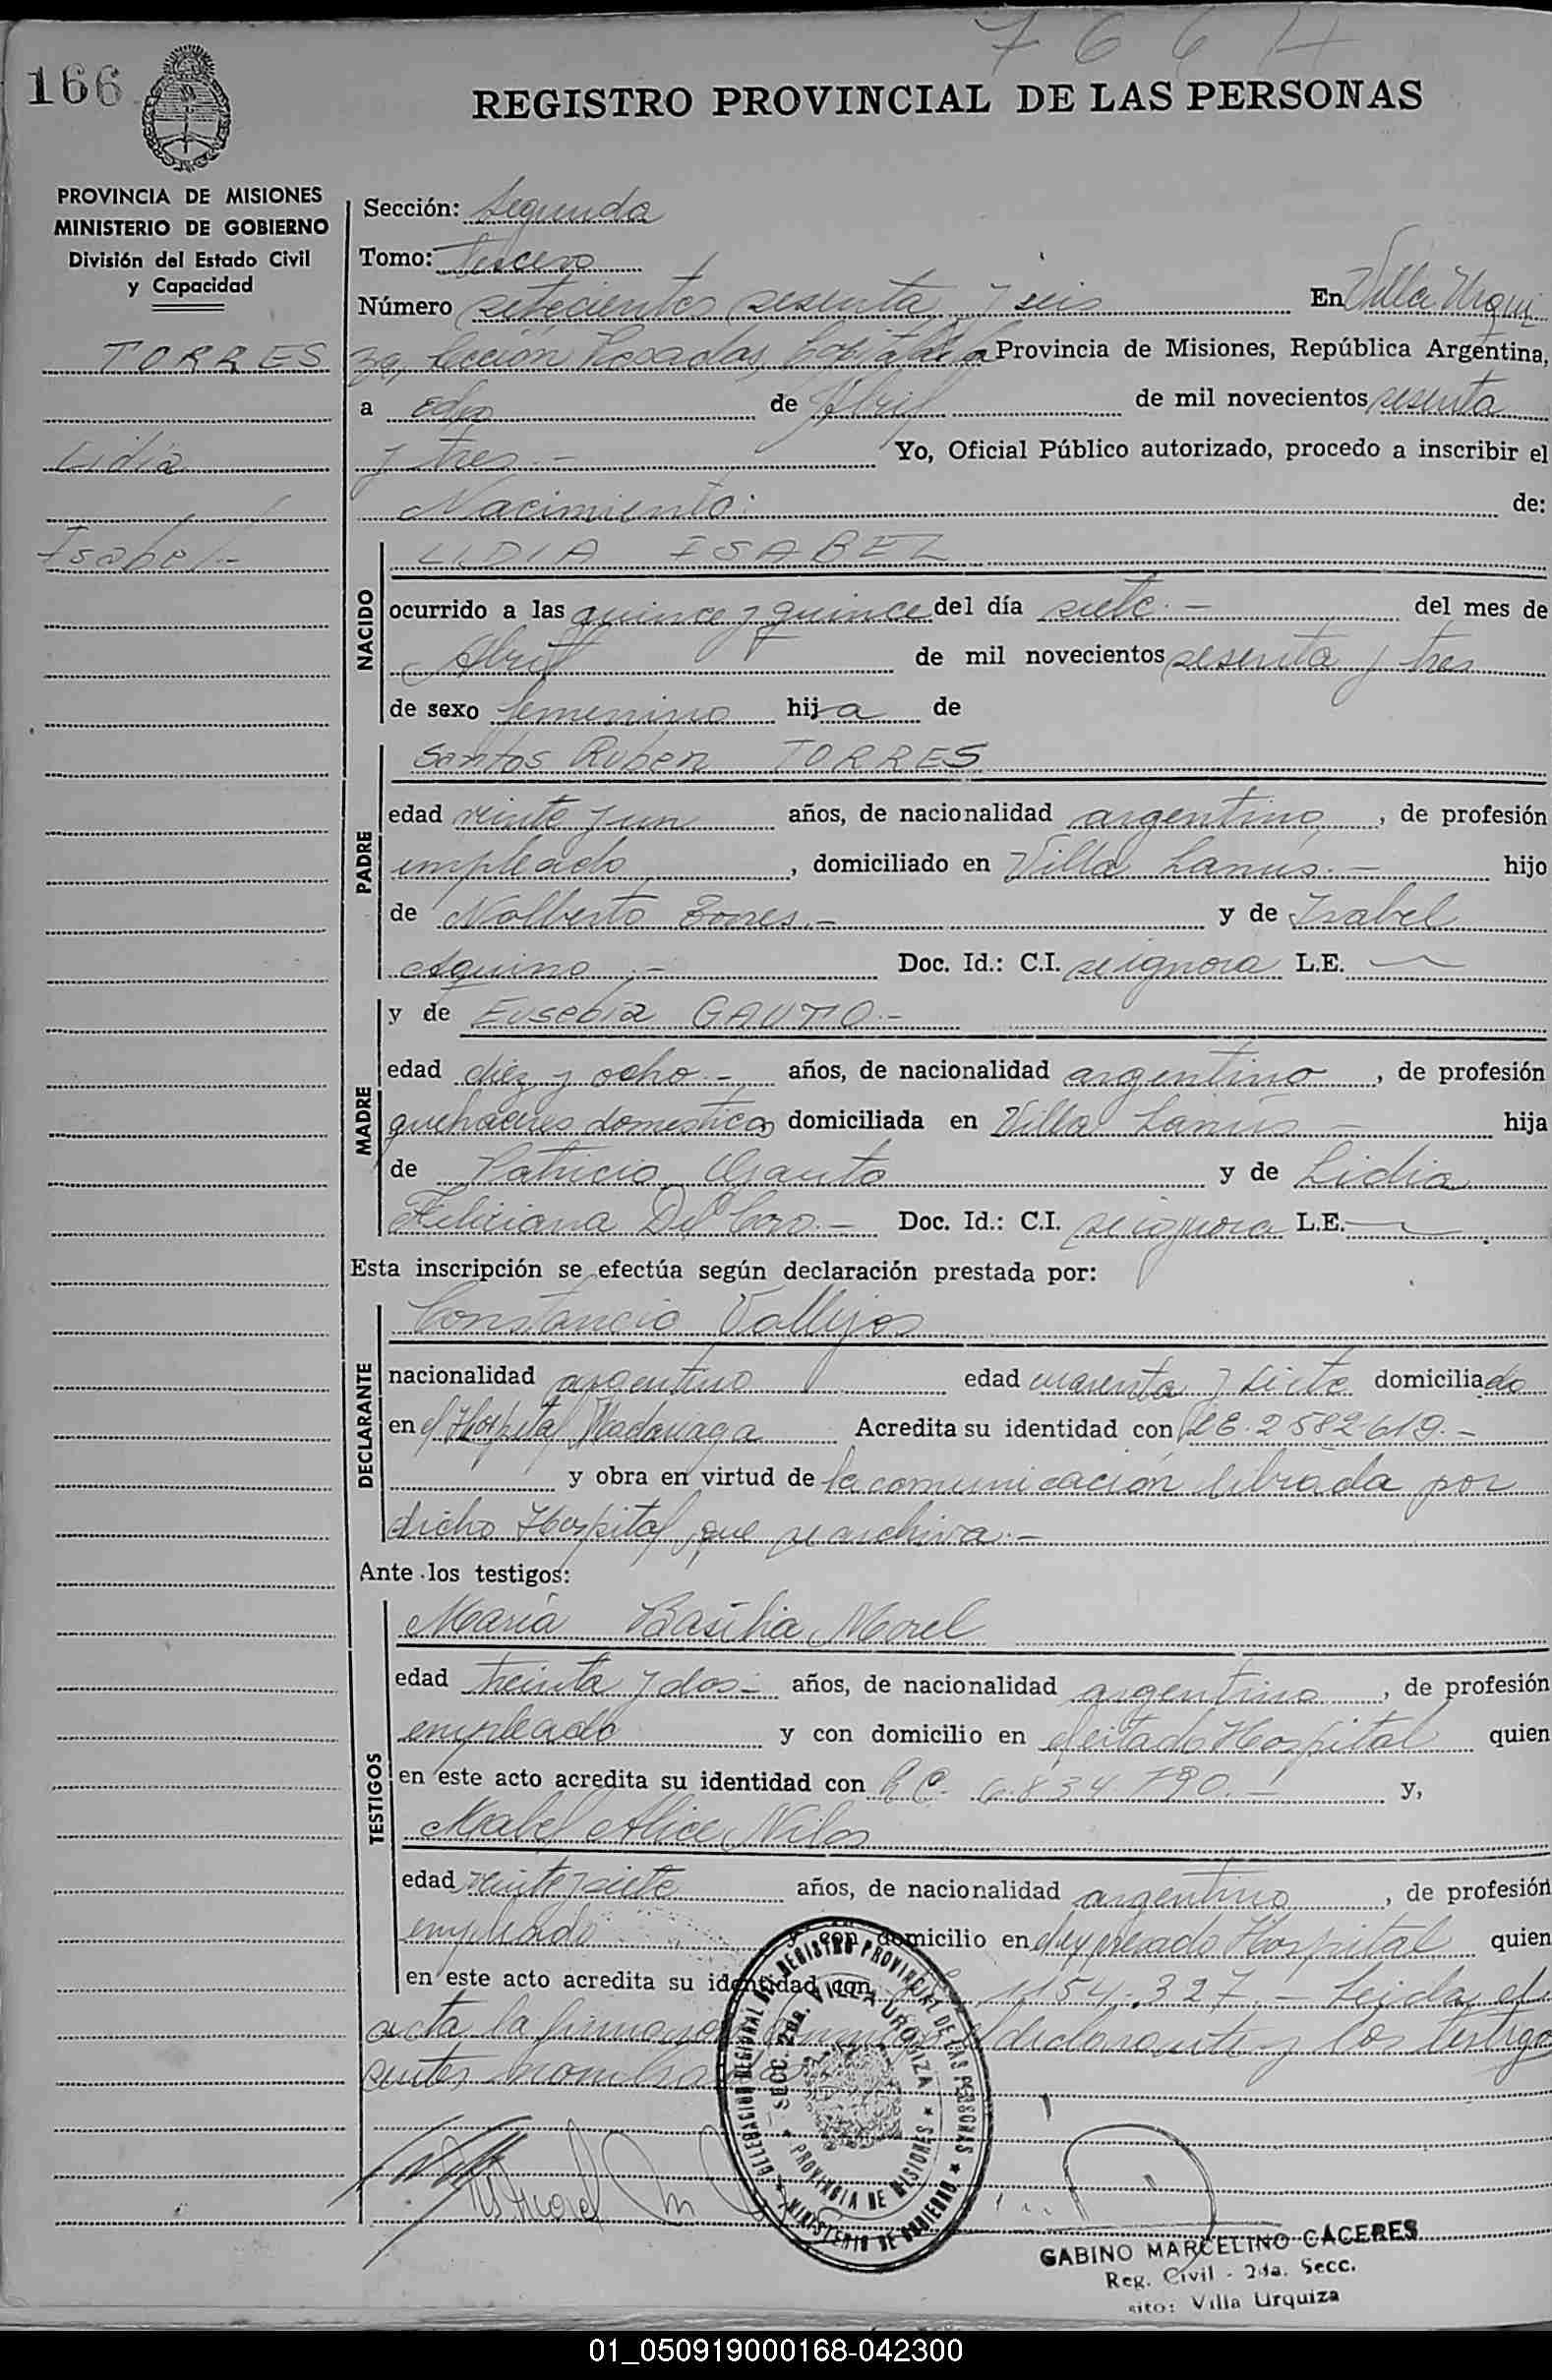 7664
166
REGISTRO PROVINCIAL DE LAS PERSONAS
PROVINCIA DE MISIONES
MINISTERIO DE GOBIERNO
División del Estado Civil
y Capacidad
TORRES
Lidia
Isabel.-
Sección: Segunda
Tomo: Tercero
Número setecientos sesenta y seis En Villa Urqui
za, Sección Posadas, Capital de la Provincia de Misiones, República Argentina,
a ocho de Abril de mil novecientos sesenta
y tres.- Yo, Oficial Público autorizado, procedo a inscribir el
Nacimiento: de:
NACIDO
LIDIA ISABEL
ocurrido a las quince y quince del día siete.- del mes de
Abril de mil novecientos sesenta y tres
de sexo femenino hija de
PADRE
Santos Ruben TORRES
edad veinte y un años, de nacionalidad argentino, de profesión
empleado, domiciliado en Villa Lanús.- hijo
de Nolberto Torres.- y de Isabel
Aquino.- Doc. Id.: C.I. se ignora L.E.
MADRE
y de Eusebia GAUTO.-
edad diez y ocho.- años, de nacionalidad argentino, de profesión
quehaceres domesticos domiciliada en Villa Lanús - hija
de Patricio Gauto y de Lidia
Feliciana Del Coro.- Doc. Id.: C.I. se ignora L.E.
Esta inscripción se efectúa según declaración prestada por:
DECLARANTE
Constancio Vallejos
nacionalidad argentino edad cuarenta y siete domiciliado
en el Hospital Madariaga Acredita su identidad con LE. 2582619.-
y obra en virtud de la comunicación librada por
dicho Hospital, que se archiva.-
Ante los testigos:
TESTIGOS
María Basilia Morel
edad treinta y dos- años, de nacionalidad argentino, de profesión
empleado y con domicilio en el citado Hospital quien
en este acto acredita su identidad con L.C. 6.834.790.- y,
Mabel Alice Nilos
edad veinte y siete años, de nacionalidad argentino, de profesión
empleado y con domicilio en el expresado Hospital quien
en este acto acredita su identidad con 1154.327.- Leida el
acta la firman conmigo el declarante y los testigos
antes nombrados
DELEGACION REGIONAL DEL REGISTRO PROVINCIAL DE LAS PERSONAS
MINISTERIO DE GOBIERNO
SECC. 2da. VILLA URQUIZA
PROVINCIA DE MISIONES
GABINO MARCELINO CACERES
Reg. Civil - 2da. Secc.
sito: Villa Urquiza
01_050919000168-042300